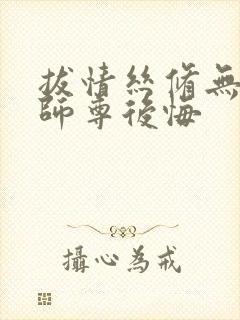 拔情絲脩無
師尊後悔
攝心為戒